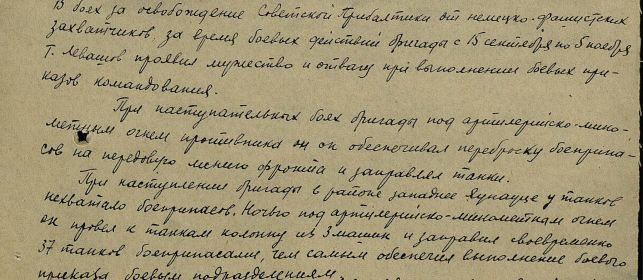 В боях за освобождение Советской Прибалтики от немецко-фашистских
захватчиков, за время боевых действий бригады с 15 сентября по 5 ноября
Т. Левашов проявил мужество и отвагу при выполнении боевых при-
казов командования.
При наступательных боях бригады под артилерийско-мино-
метным огнем противника он он обеспечивал переброску боеприпа-
сов на передовую линию фронта и заправлял танки.
При наступлении бригады в районе западнее Яунауце у танков
нехватало боеприпасов. Ночью под артилерийско-минометным огнем
он провел к танкам колонну из 3 машин и заправил своевременно
37 танков боеприпасами, чем самым обеспечил выполнение боевого
приказа боевым подразделениям